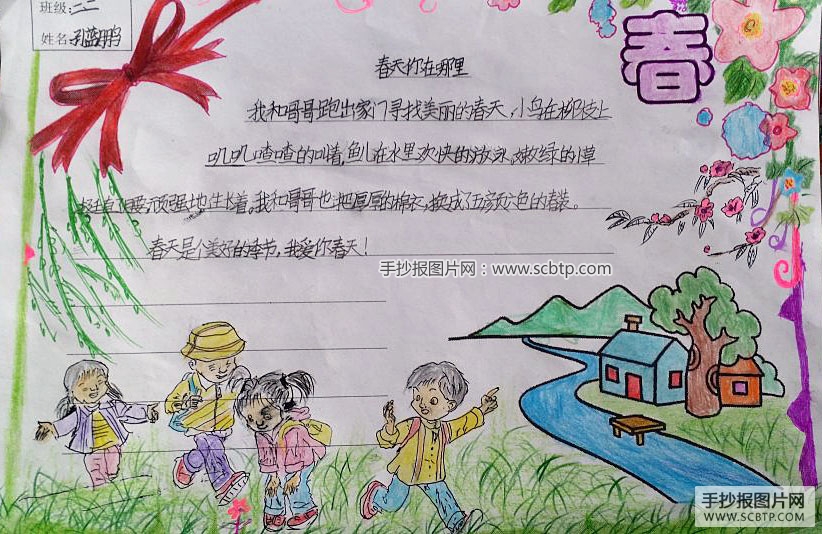 班级:二二
姓名:孙蓝鹏
春
春天你在哪里
我和哥哥跑出家门寻找美丽的春天,小鸟在柳枝上
叽叽喳喳的叫着,鱼儿在水里欢快的游泳,嫩绿的草
顽强地生长着,我和哥哥也把厚厚的棉衣,换成了五颜六色的春装。
春天是个美好的季节,我爱你春天!
手抄报图片网:www.scbtp.com
手抄报图片网
WWW.SCBTP.COM